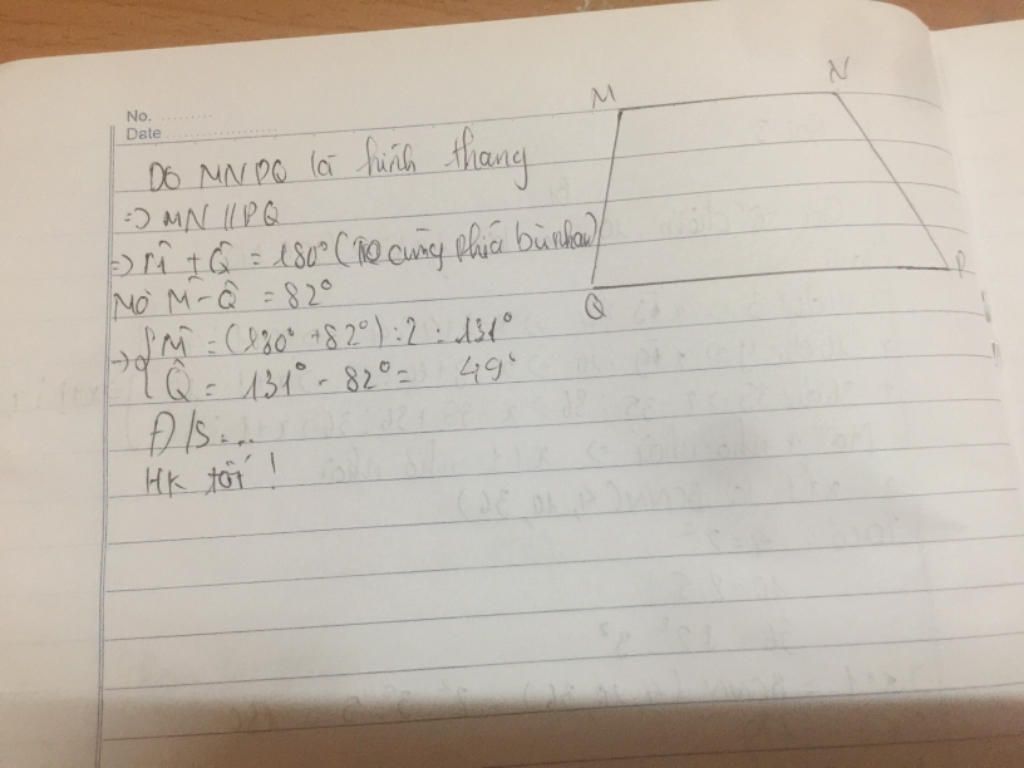 No. ..........
Date ......................
M
N
Do MNPQ là hình thang
=> MN // PQ
=> M̂ + Q̂ = 180° ( cùng phía bù nhau)
Mà M̂ - Q̂ = 82°
P
Q
=> { M̂ = (180° + 82°) : 2 = 131°
Q̂ = 131° - 82° = 49°
Đ/S: ...
HK tốt !